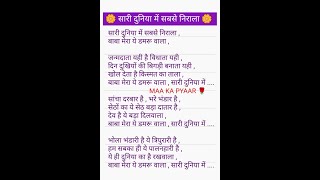 🌼 सारी दुनिया में सबसे निराला 🌼
सारी दुनिया में सबसे निराला ,
बाबा मेरा ये डमरू वाला ,
जन्मदाता यही है विधाता यही ,
दिन दुखियों की बिगड़ी बनाता यही ,
खोल देता है किस्मत का ताला ,
बाबा मेरा ये डमरू वाला , सारी दुनिया में ....
MAA KA PYAAR 🌹
सांचा दरबार है , भरे भंडार है ,
सेठों का ये सेठ बड़ा दातार है ,
देव है ये बड़ा दिलवाला ,
बाबा मेरा ये डमरू वाला , सारी दुनिया में ....
भोला भंडारी है ये त्रिपुरारी है ,
हम सबका ही ये पालनहारी है ,
ये ही दुनिया का है रखवाला ,
बाबा मेरा ये डमरू वाला , सारी दुनिया में ....